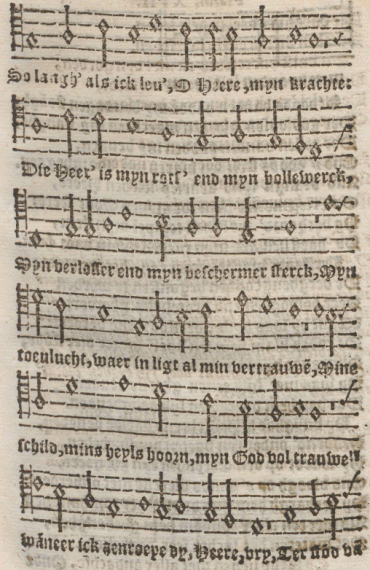 So langh' als ick leu', O Heere, myn krachte:
Die Heer' is myn rots' end myn bollewerck,
Myn verlosser end myn beschermer sterck, Myn
toeulucht, waer in ligt al min vertrauwē, Mine
schild, mins heyls hoorn, myn God vol trauwe"
wāneer ick aenroepe dy, Heere, vry, Ter nod vā